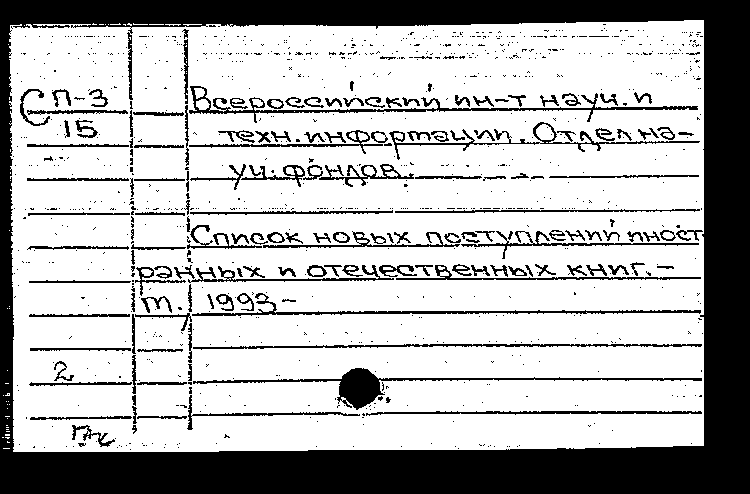 СП-3
15
Всероссийский ин-т науч. и
техн. информации. Отдел на-
уч. фондов.
Список новых поступлений иност-
ранных и отечественных книг. -
М., 1993-
2